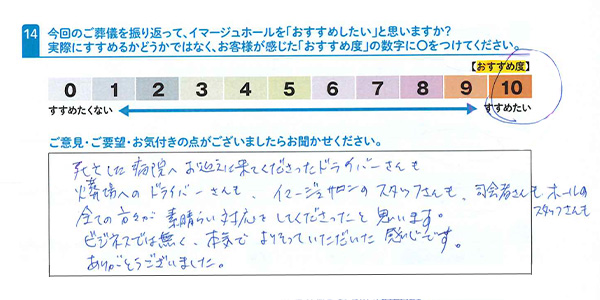 14 今回のご葬儀を振り返って、イマージュホールを「おすすめしたい」と思いますか?
実際にすすめるかどうかではなく、お客様が感じた「おすすめ度」の数字に〇をつけてください。
【おすすめ度】
0 1 2 3 4 5 6 7 8 9 10
すすめたくない すすめたい
ご意見・ご要望・お気付きの点がございましたらお聞かせください。
死亡した病院へお迎えに来てくださったドライバーさんも
火葬場へのドライバーさんも、イマージュサロンのスタッフさんも、司会者さんもホールの
スタッフさんも
全ての方々が素晴らしい対応をしてくださったと思います。
ビジネスでは無く、本気でよりそっていただいた感じです。
ありがとうございました。